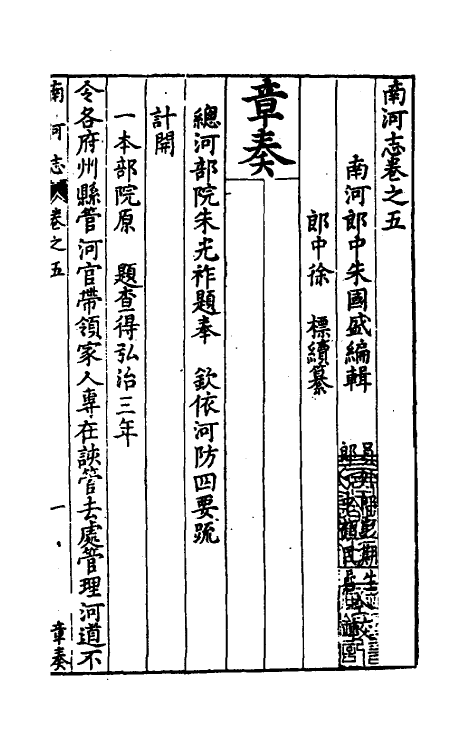 南河志卷之五
南河郎中朱國盛編輯
郎中徐　標續纂
章奏
總河部院朱光祚題奉　欽依河防四要疏
計開
一本部院原　題查得弘治三年
令各府州縣管河官帶領家人專在該管去處管理河道不
南河志　卷之五　一　章奏